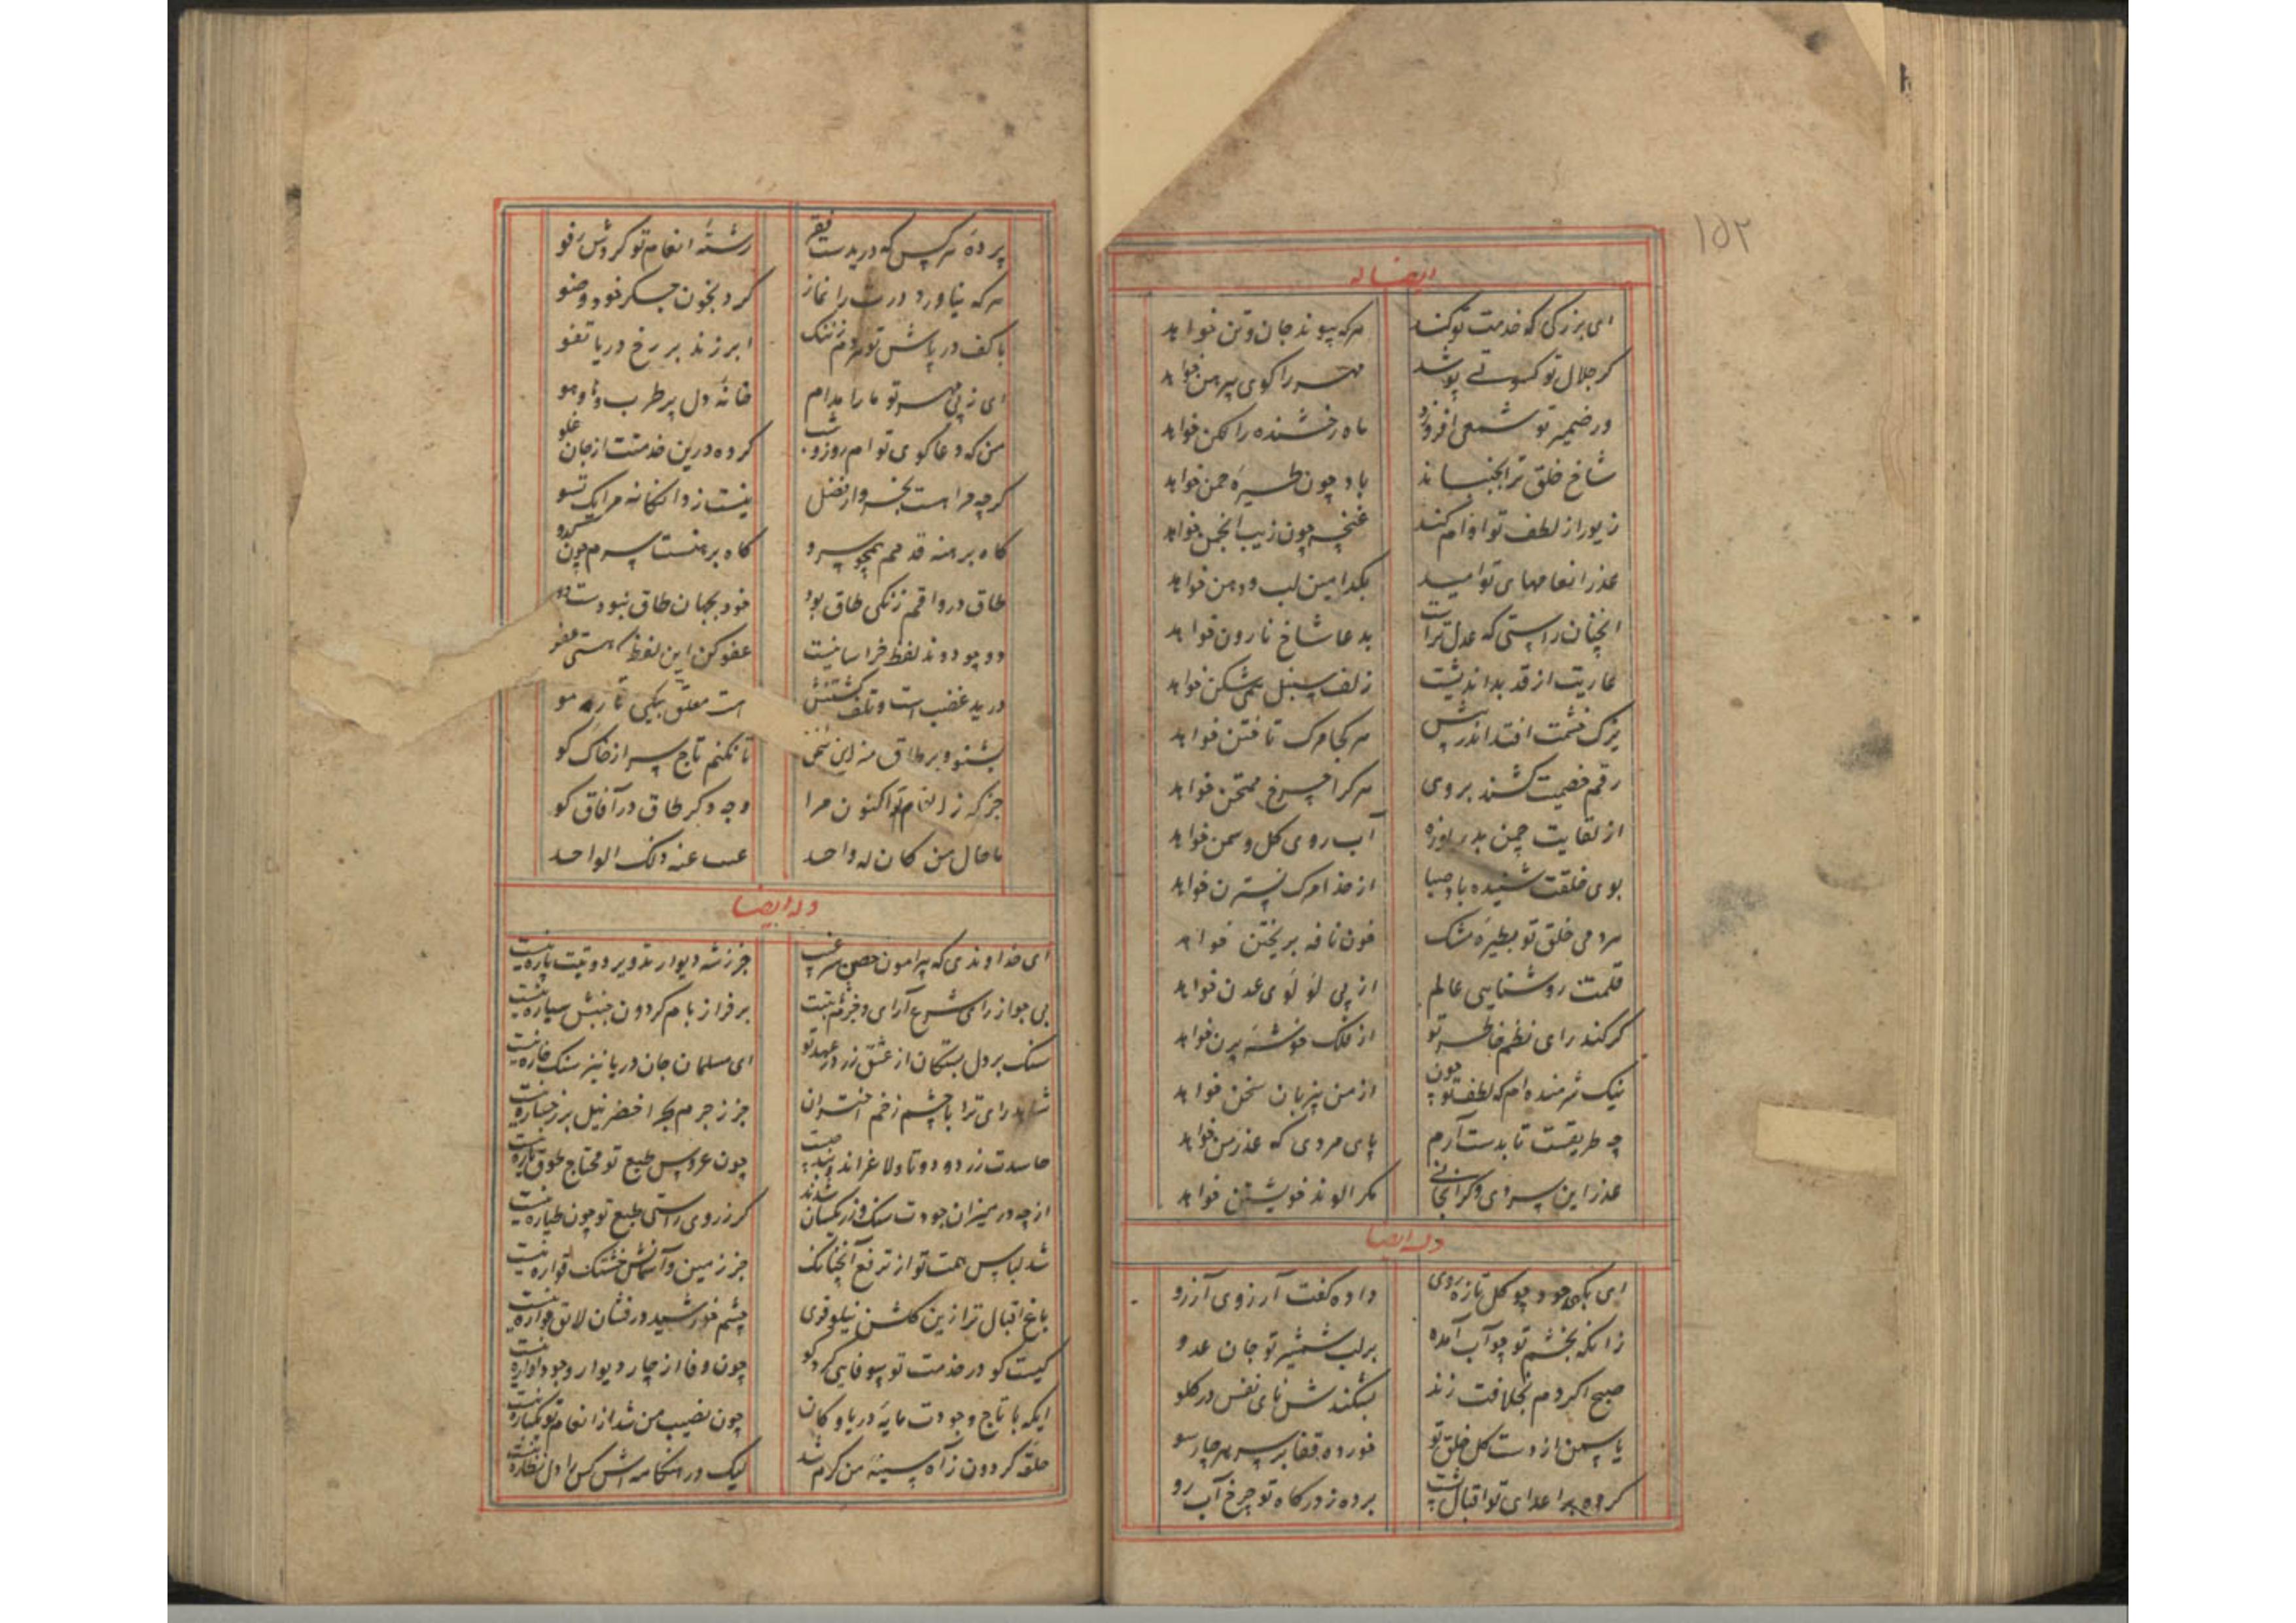 ۱۵۲
ایضا له
ای بزرگی که خدمت تو کند هرکه پیوند جان و تن خواهد
گر جلال تو کسوتی پوشد مهر را کوی پیرهن خواهد
ور ضمیر تو شمعی افروزد ماه رخشنده را لکن خواهد
شاخ خلق ترا بجنباند باد چون طیرهٔ چمن خواهد
زیور از لطف تو اوام کند غنچه چون زیب انجمن خواهد
عذر انعامهای تو امید بکدامین لب و دهن خواهد
آنچنان راستی که عدل تراست بدعا شاخ نارون خواهد
عاریت از قد بداندیشت زلف سنبل همی شکن خواهد
یزک خشمت افتد اندر پیش هر کجا مرک تاختن خواهد
رقم خصمیت کشند بروی هر کرا چرخ ممتحن خواهد
از لقایت چمن بدریوزه آب روی کل و سمن خواهد
بوی خلقت شنیده باد صبا از خدا مرک نسترن خواهد
مردمی خلق تو بطیرهٔ مشک خون نافه بریختن خواهد
قلمت روشنایی عالم از پی لؤلؤی عدن خواهد
گر کند رای نظم خاطر تو از فلک خوشهٔ پرن خواهد
نیک شرمنده ام که لطف تو چون از من بیزبان سخن خواهد
چه طریقست تا بدست آرم پای مردی که عذر من خواهد
عذر این سردی و گرانجانی مکر الوند خویشتن خواهد
وله ایضا
ای بکه جود چو کل تازه روی داده کفت آرزوی آرزو
زانکه بخشم تو چو آب آمده برلب شمشیر تو جان عدو
صبح اگر دم بخلافت زند بشکندش نای نفس در کلو
یاسمن از دست کل خلق تو خورده قفا بر سر هر چارسو
کرده بر اعدای تو اقبال پشت برده ز درگاه تو چرخ آب رو
پردهٔ هر کس که دریدست فقر رشتهٔ انعام تو کردش رفو
هرکه نیاورد درت را نماز کرد بخون جکر خود وضو
با کف در پاش تو هر دم ز ننک ابر زند بر رخ دریا تفو
ای ز پی مهر تو ما را مدام خانهٔ دل پر طرب و های و هو
من که دعا کوی تو ام روز و شب کرده درین خدمتت از جان غلو
گرچه مرا هست بخروار فضل نیست ز دانکانه مرا یک تسو
کاه برهنه قدمم همچو سرو کاه برهنست سرم چون کدو
طاق در واقم ز تکی طاق بود خود بجهان طاق نبودست دو
دو چو دوند لفظ خراسانیست عفو کن این لفظ که هستی عفو
در ید غضب است و تلف کشتنش است معلق بیکی تاره مو
بشنو و بر طاق منه این سخن تا نکنم تاج سر از خاک کو
جز که ز انعام تو اکنون مرا وجه دکر طاق در آفاق کو
ما حال من کان له واحد غیب عنه ذلک الواحد
وله ایضا
ای خداوندی که پیرامون حصن سر غیب جز ز شه دیوار تدویر دویت باره نیست
بی جواز رای شرع آرای و خرم ثبتت بر فراز بام کردون جنبش سیاره نیست
سنک بر دل بستکان از عشق زر در عهد تو ای مسلمان جان دریا نیز سنک خاره نیست
شاهد رای ترا با چشم زخم اختران جز ز جرم بحر اخضر نیل بر رخساره نیست
حاسدت زر دو دو تا و لاغر اند چون عروس طبع تو محتاج طوق یاره نیست
از چه در میزان جودت سنک و زر یکسان شدند کر ز روی راستی طبع تو چون طیاره نیست
شد لباس همت تو از ترفع آنچنانک جز زمین و آسمانش خشتک قواره نیست
باغ اقبال ترا زین کلشن نیلوفری چشم خورشید درفشان لایق فواره نیست
کیست کو در خدمت تو بیوفایی کرد کو چون وفا از چار دیوار وجود آواره نیست
ایکه با تاج وجودت مایهٔ دریا و کان چون نصیب من شد از انعام تو یکباره نیست
حلقهٔ کردون ز آه سینهٔ من کرم شد لیک در هنکامه اش کس را دل نظاره نیست